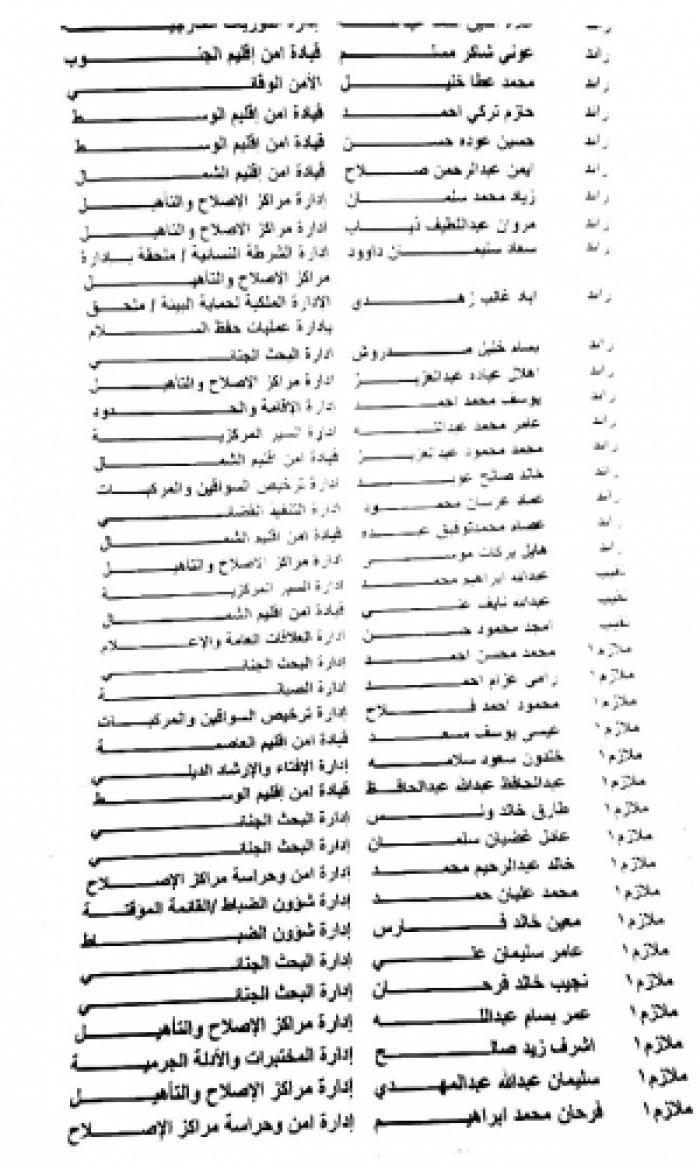 رائد عوني شاكر مسلم قيادة امن إقليم الجنوب
رائد محمد عطا خليل الأمن الوقائي
رائد حازم تركي احمد قيادة امن إقليم الوسط
رائد حسين عوده حسن قيادة امن إقليم الوسط
رائد ايمن عبدالرحمن صلاح قيادة امن إقليم الشمال
رائد زياد محمد سلمان إدارة مراكز الإصلاح والتأهيل
رائد مروان عبداللطيف ذياب إدارة مراكز الإصلاح والتأهيل
رائد سعاد سليمان داوود ادارة الشرطة النسائية / ملحقة بادارة
مراكز الإصلاح والتأهيل
رائد اياد غالب زهدي الإدارة الملكية لحماية البيئة / ملحق
بإدارة عمليات حفظ السلام
رائد خليل إدارة البحث الجنائي
رائد عبدالعزيز ادارة مراكز الإصلاح والتأهيل
رائد يوسف محمد احمد إدارة الإقامة والحدود
رائد عامر محمد عبدالله ادارة السير المركزية
رائد محمد محمود عبدالعزيز قيادة امن اقليم الشمال
رائد خالد صالح ادارة ترخيص السواقين والمركبات
رائد عماد عرسان محمود ادارة التنفيذ القضائي
رائد عصام محمدتوفيق عبده قيادة امن إقليم الشمال
رائد هايل بركات إدارة مراكز الاصلاح والتأهيل
نقيب عبدالله ابراهيم محمد إدارة السير المركزية
نقيب عبدالله نايف علي قيادة امن إقليم الشمال
نقيب امجد محمود حسن إدارة العلاقات العامة والإعلام
ملازم١ محمد محسن احمد إدارة البحث الجنائي
ملازم١ رامي عزام احمد إدارة الصيانة
ملازم١ محمود احمد فلاح إدارة ترخيص السواقين والمركبات
ملازم١ عيسى يوسف مسعد قيادة امن إقليم العاصمة
ملازم١ خلدون سعود سلامه إدارة الإفتاء والإرشاد الديني
ملازم١ عبدالحافظ عبدالله عبدالحافظ قيادة امن إقليم الوسط
ملازم١ طارق خالد ونس إدارة البحث الجنائي
ملازم١ عادل غضبان سلمان إدارة البحث الجنائي
ملازم١ خالد عبدالرحيم محمد إدارة امن وحراسة مراكز الإصلاح
ملازم١ محمد عليان حمد إدارة شؤون الضباط /القائمة الموقتة
ملازم١ معين خالد فارس إدارة شؤون الضباط
ملازم١ عامر سليمان علي إدارة البحث الجنائي
ملازم١ نجيب خالد فرحان إدارة البحث الجنائي
ملازم١ عمر بسام عبدالله إدارة مراكز الإصلاح والتأهيل
ملازم١ اشرف زيد صالح إدارة المختبرات والأدلة الجرمية
ملازم١ سليمان عبدالله عبدالمهدي إدارة مراكز الإصلاح والتأهيل
ملازم١ فرحان محمد ابراهيم إدارة امن وحراسة مراكز الإصلاح